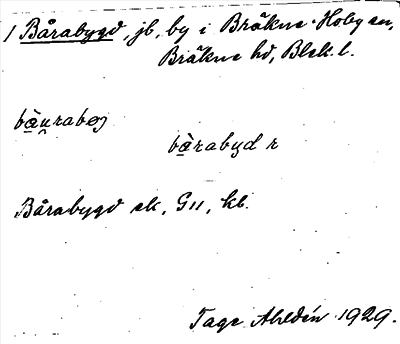 1 Bårabygd, jb, by i Bräkne-Hoby sn,
Bräkne hd, Blek. l.
bàu̯rabøj
bàrabyd r
Bårabygd ek, G11, kb.
Tage Ahldén 1929.